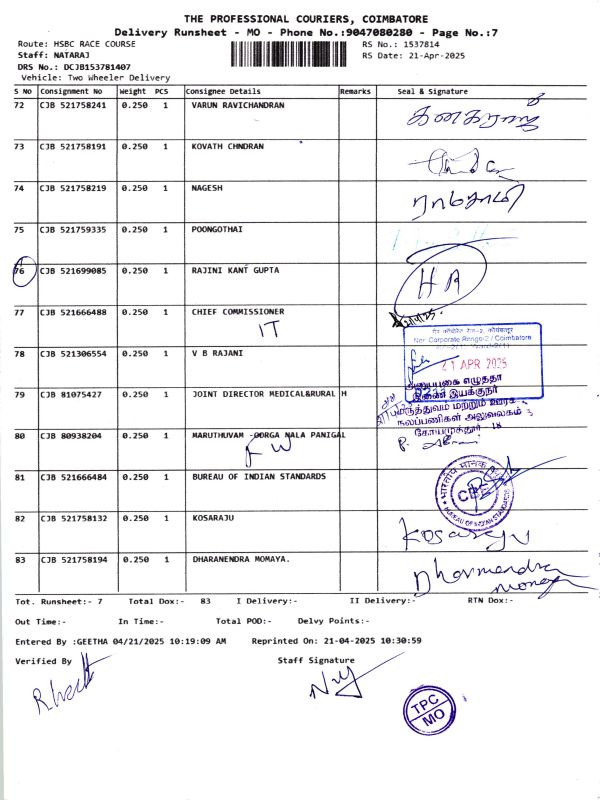 THE PROFESSIONAL COURIERS, COIMBATORE
Delivery Runsheet - MO - Phone No.:9047080280 - Page No.:7
Route: HSBC RACE COURSE
RS No.: 1537814
Staff: NATARAJ
RS Date: 21-Apr-2025
DRS No.: DCJB153781407
Vehicle: Two Wheeler Delivery
S NO Consignment No Weight PCS Consignee Details Remarks Seal & Signature
72 CJB 521758241 0.250 1 VARUN RAVICHANDRAN
73 CJB 521758191 0.250 1 KOVATH CHNDRAN
74 CJB 521758219 0.250 1 NAGESH
75 CJB 521759335 0.250 1 POONGOTHAI
76 CJB 521699085 0.250 1 RAJINI KANT GUPTA
HR
77 CJB 521666488 0.250 1 CHIEF COMMISSIONER
IT
Non Corporate Range-2 / Coimbatore
78 CJB 521306554 0.250 1 V B RAJANI
21 APR 2025
79 CJB 81075427 0.250 1 JOINT DIRECTOR MEDICAL&RURAL H
இணை இயக்குநர்
மருத்துவம் மற்றும் ஊரக
நலப்பணிகள் அலுவலகம்
கோயமுத்தூர் 18
80 CJB 80938204 0.250 1 MARUTHUVAM -OORGA NALA PANIGAL
FW
81 CJB 521666484 0.250 1 BUREAU OF INDIAN STANDARDS
भारतीय मानक
BUREAU OF INDIAN STANDARDS
82 CJB 521758132 0.250 1 KOSARAJU
Kosaraju
83 CJB 521758194 0.250 1 DHARANENDRA MOMAYA.
Tot. Runsheet:- 7 Total Dox:- 83 I Delivery:- II Delivery:- RTN Dox:-
Out Time:- In Time:- Total POD:- Delvy Points:-
Entered By :GEETHA 04/21/2025 10:19:09 AM Reprinted On: 21-04-2025 10:30:59
Verified By Staff Signature
TPC
MO